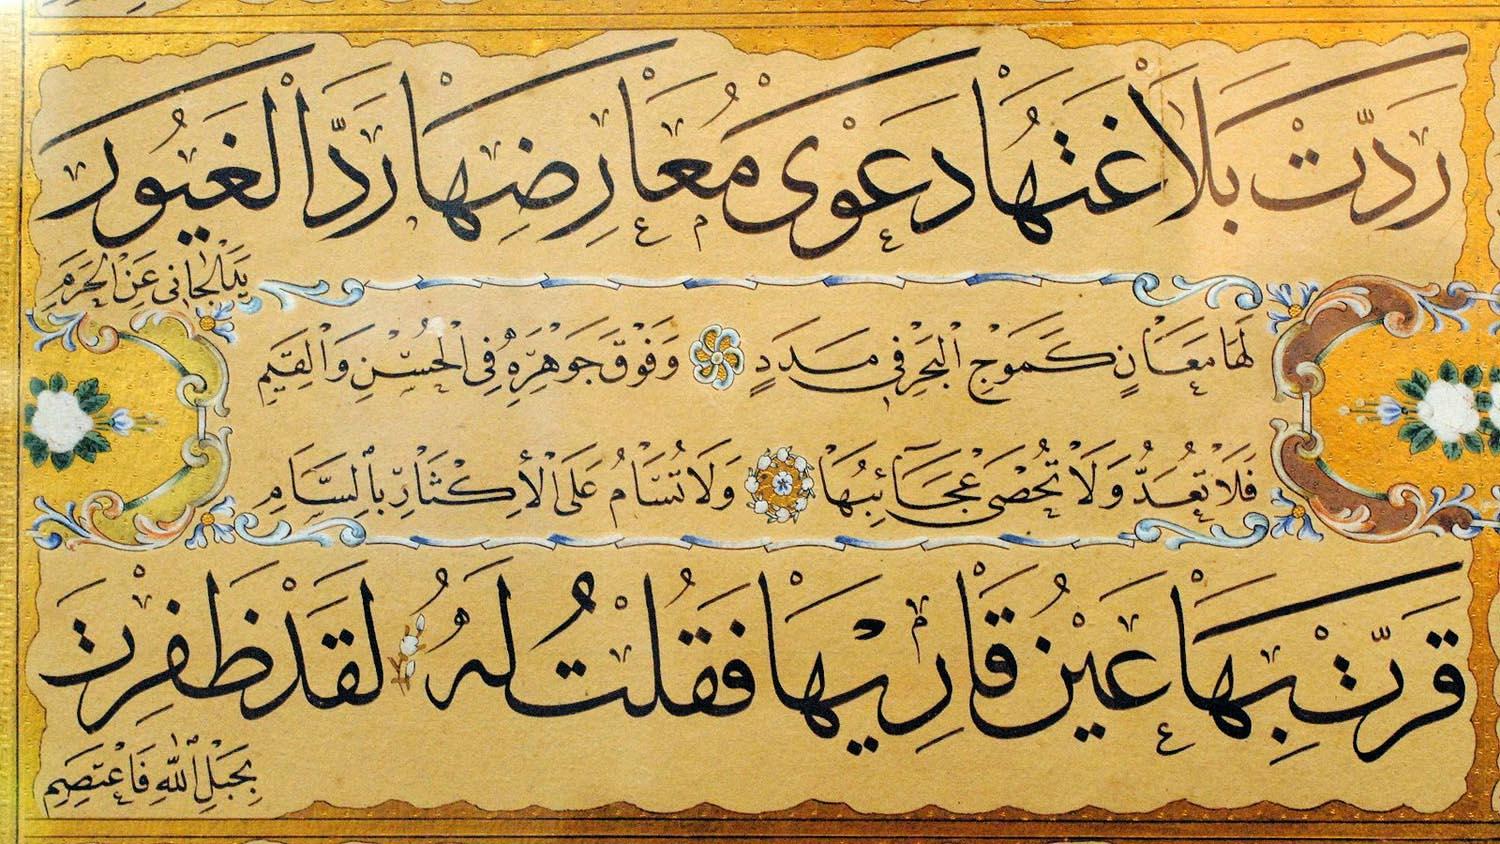 رَدَّتْ بَلَاغَتُهَا دَعْوٰى مُعَارِضِهَا رَدَّ الْغَيُورِ
يَدَ الْجَانِي عَنِ الْحَرَمِ
لَهَا مَعَانٍ كَمَوْجِ الْبَحْرِ فِي مَدَدٍ وَفَوْقَ جَوْهَرِهِ فِي الْحُسْنِ وَالْقِيَمِ
فَلَا تُعَدُّ وَلَا تُحْصٰى عَجَائِبُهَا وَلَا تُسَامُ عَلَى الْأِكْثَارِ بِالسَّأَمِ
قَرَّتْ بِهَا عَيْنُ قَارِيهَا فَقُلْتُ لَهُ لَقَدْ ظَفِرْتَ
بِحَبْلِ اللّٰهِ فَاعْتَصِمِ